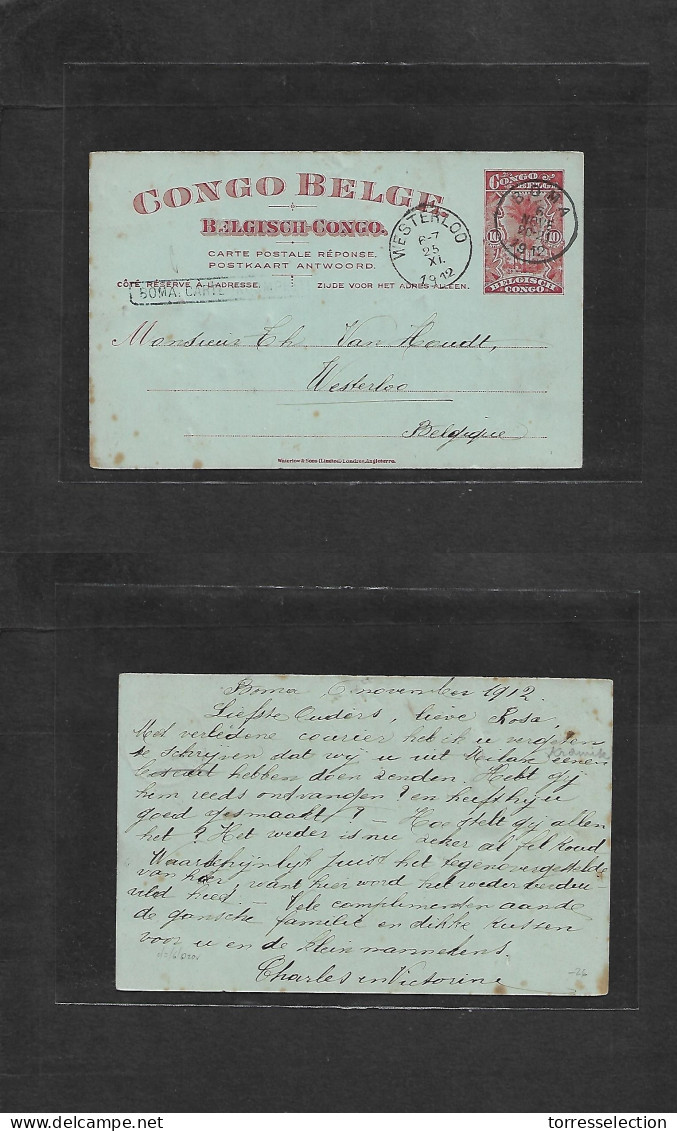 CONGO BELGE
BELGISCH-CONGO.
CARTE POSTALE RÉPONSE.
POSTKAART ANTWOORD.
CÔTÉ RÉSERVÉ À L'ADRESSE. ZIJDE VOOR HET ADRES ALLEEN.
BOMA. CARTE
WESTERLOO
6-7
25
XI.
1912
CONGO BELGE
10 10
BELGISCH
CONGO
BOMA
6
NOVE
1912
Monsieur Th. Van Houdt,
Westerloo
Belgique
Waterlow & Sons (Limited) Londres, Angleterre.
Boma 6 november 1912.
Liefste Ouders, lieve Rosa,
Met verledene courier heb ik u vergeten
te schrijven dat wij u uit Milan eenen
hebben doen zenden. Hebt gij
hem reeds ontvangen? en heeft hij u
goed gesmaakt? – Hoe stelt gij allen
het? Het weder is nu zeker al fel koud
Waarschijnlijk juist het tegenovergestelde
van hier, want hier word het weder
heet. – Vele complimenten aan de
de gansche familie en dikke kussen
voor u en de klein mannekens.
Charles en Victorine
-26
torresselection